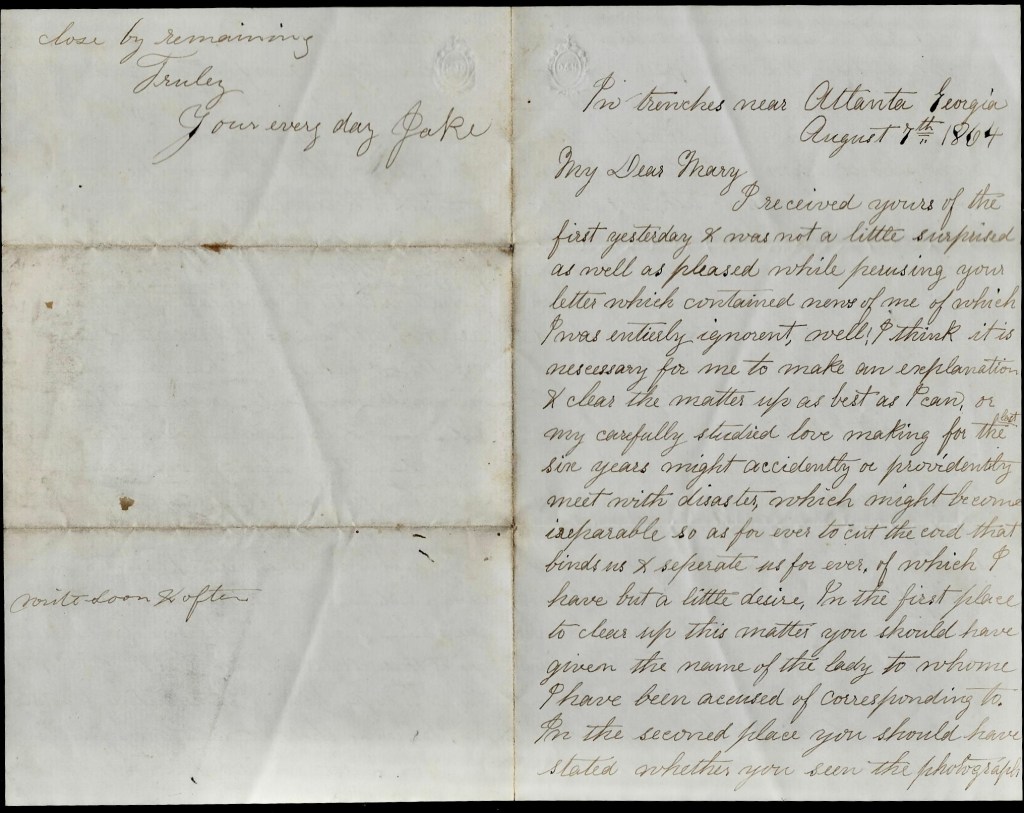 close by remaining
Truley
Your every day Jake
write soon & often
In trenches near Atlanta Georgia
August 7th 1864
My Dear Mary
I received yours of the
first yesterday & was not a little surprised
as well as pleased while perusing your
letter which contained news of me of which
I was entierly ignorent, well! I think it is
nescessary for me to make an explanation
& clear the matter up as best as I can, or
my carefully studied love making for the last
six years might accidently or providently
meet with disaster, which might become
ireparable so as for ever to cut the cord that
binds us & seperate us for ever, of which I
have but a little desire, In the first place
to clear up this matter you should have
given the name of the lady to whome
I have been accused of corresponding to.
In the seconed place you should have
stated whether you seen the photograph